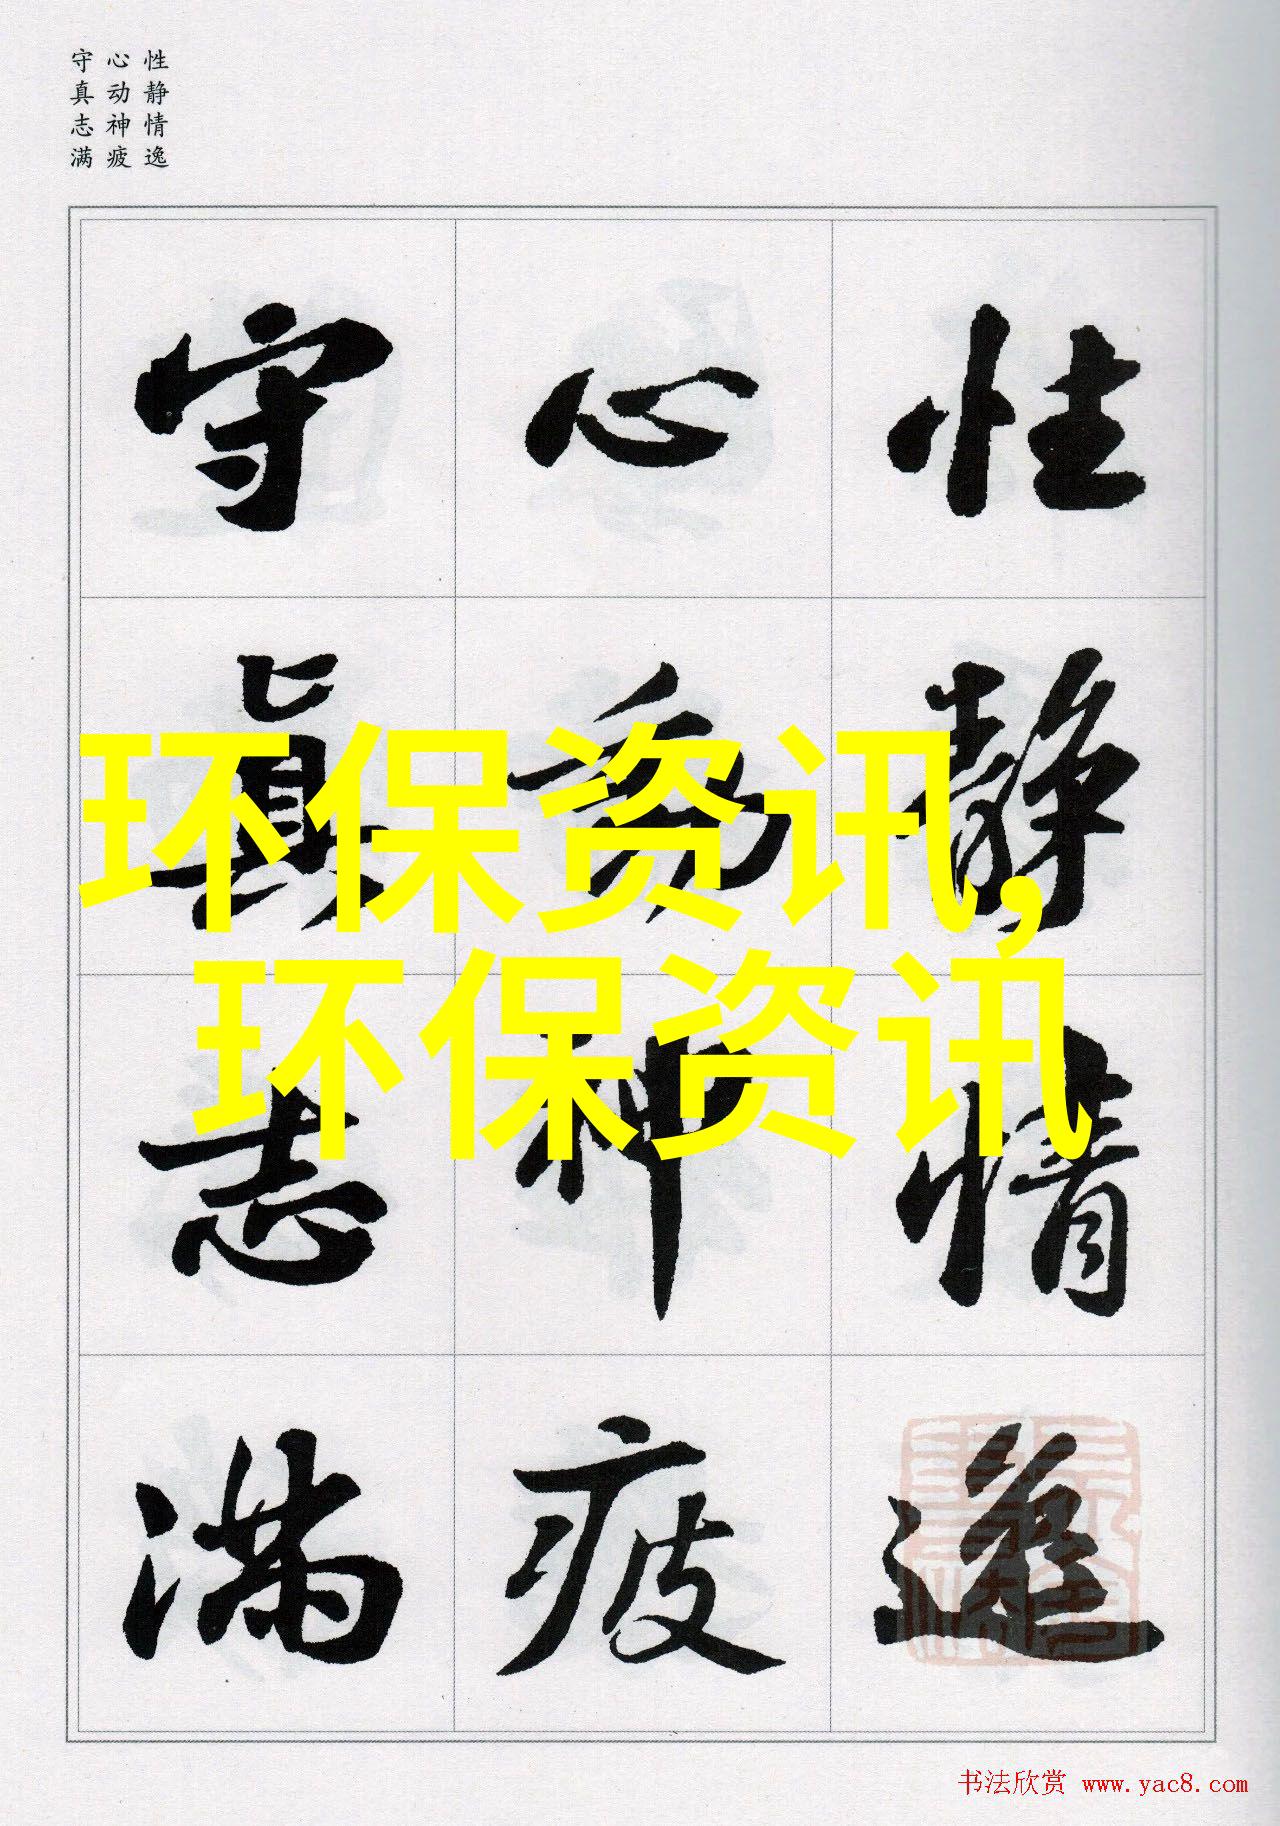 性静情逸
心动神疲
守真志满
性静情逸
心动神疲
守真志满
环保资讯,
环保资讯
书法欣赏 www.yac8.com